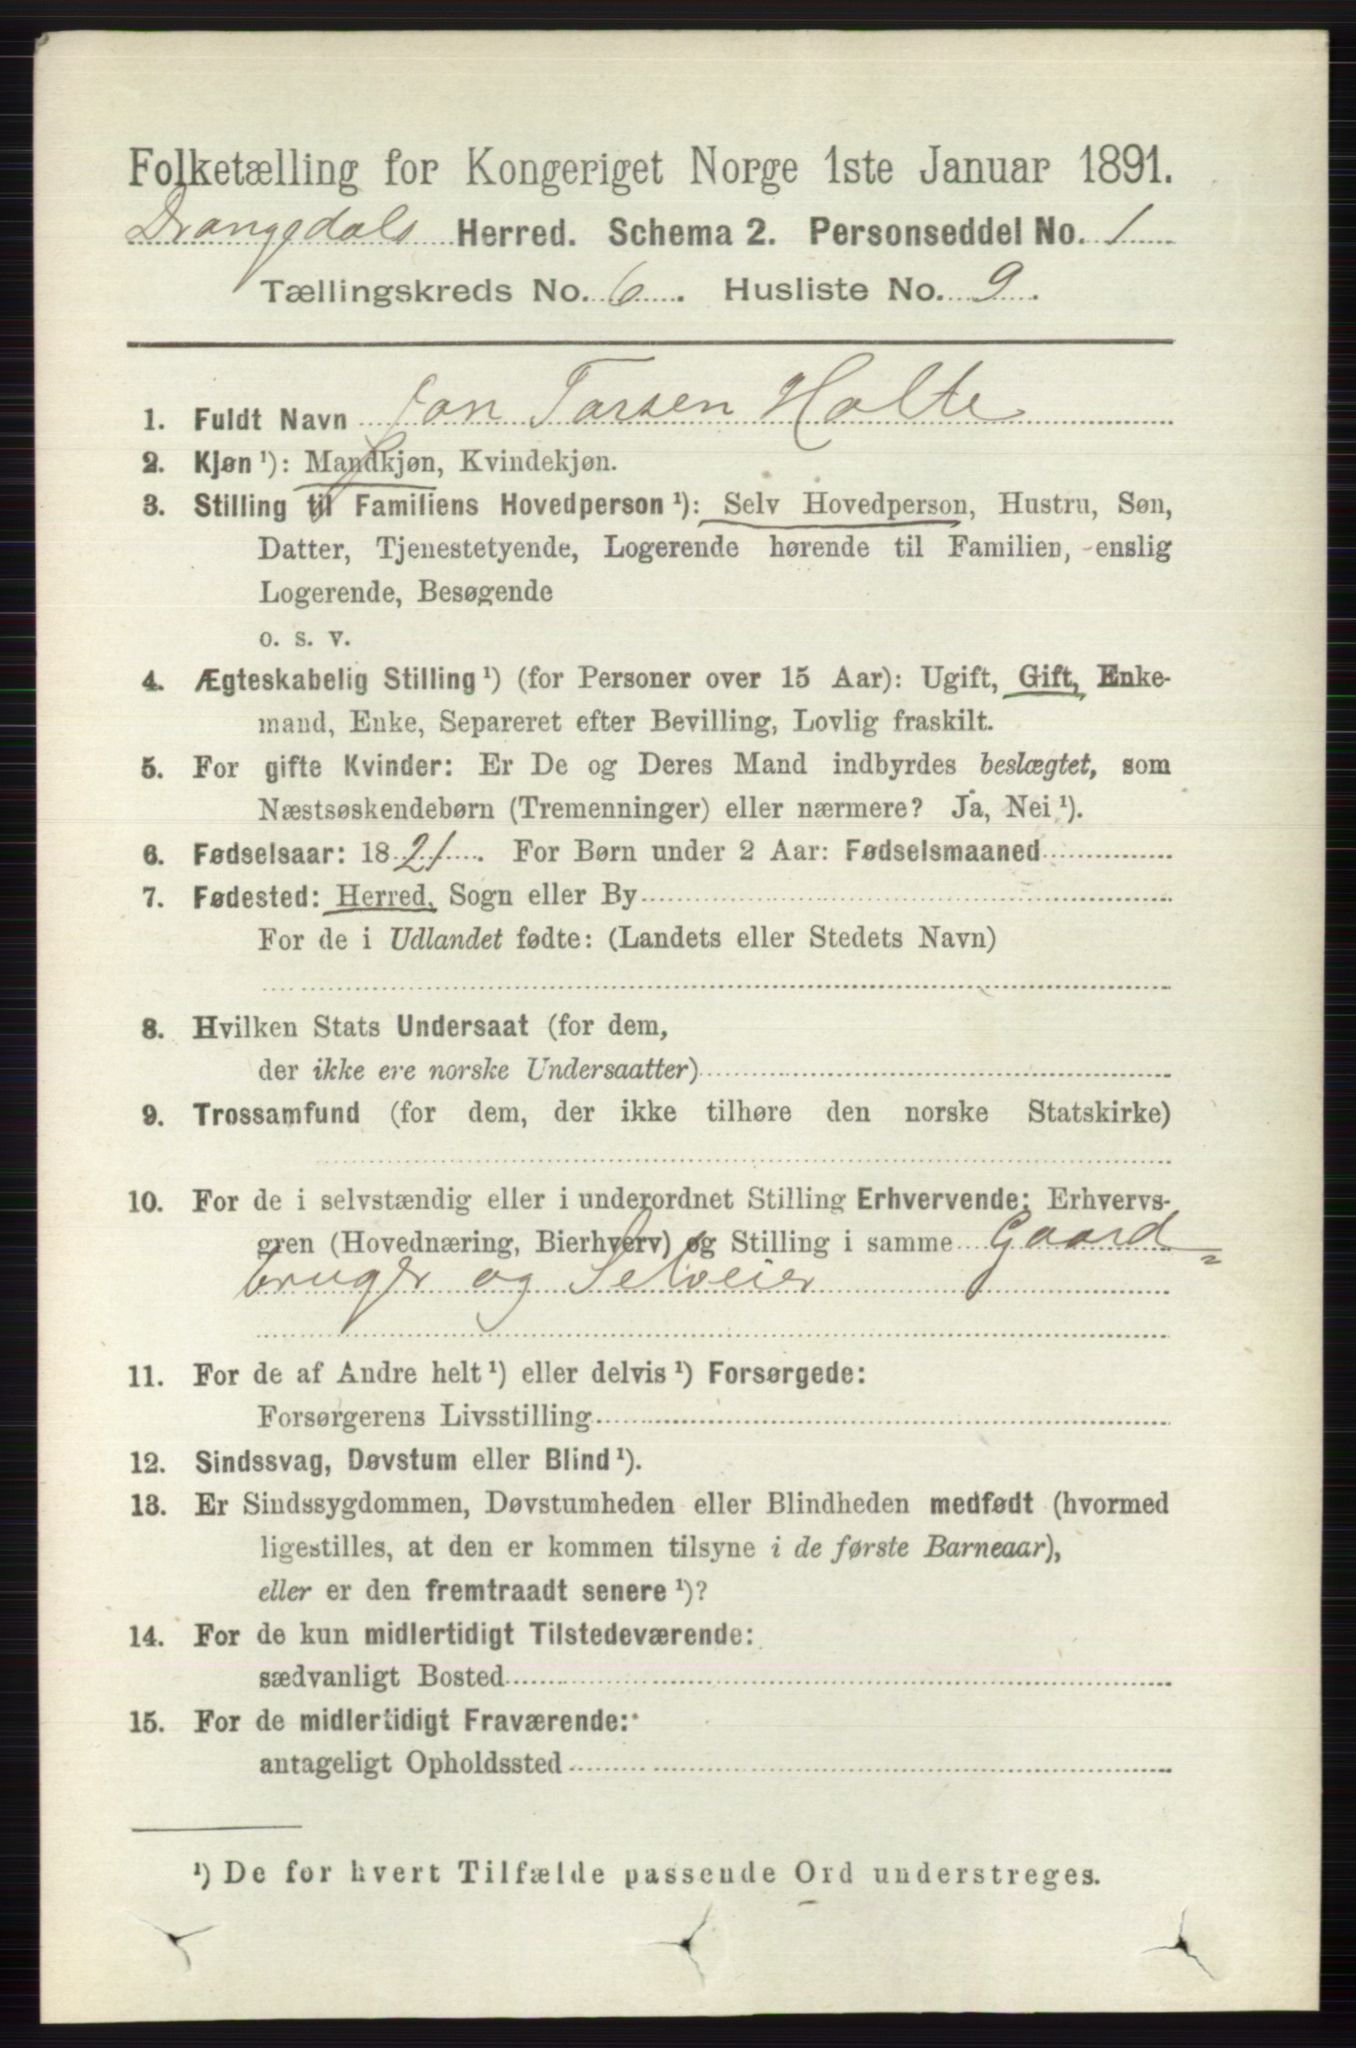 Folketælling for Kongeriget Norge 1ste Januar 1891.
Drangedals Herred. Schema 2. Personseddel No. 1
Tællingskreds No. 6. Husliste No. 9.
1. Fuldt Navn Jon Tarsen Holte
2. Kjøn ¹): Mandkjøn, Kvindekjøn.
3. Stilling til Familiens Hovedperson ¹): Selv Hovedperson, Hustru, Søn,
Datter, Tjenestetyende, Logerende hørende til Familien, enslig
Logerende, Besøgende
o. s. v.
4. Ægteskabelig Stilling ¹) (for Personer over 15 Aar): Ugift, Gift, Enke-
mand, Enke, Separeret efter Bevilling, Lovlig fraskilt.
5. For gifte Kvinder: Er De og Deres Mand indbyrdes beslægtet, som
Næstsøskendebørn (Tremenninger) eller nærmere? Ja, Nei ¹).
6. Fødselsaar: 1821. For Børn under 2 Aar: Fødselsmaaned
7. Fødested: Herred, Sogn eller By
For de i Udlandet fødte: (Landets eller Stedets Navn)
8. Hvilken Stats Undersaat (for dem,
der ikke ere norske Undersaatter)
9. Trossamfund (for dem, der ikke tilhøre den norske Statskirke)
10. For de i selvstændig eller i underordnet Stilling Erhvervende: Erhvervs-
gren (Hovednæring, Bierhverv) og Stilling i samme Gaard=
bruger og Selveier
11. For de af Andre helt ¹) eller delvis ¹) Forsørgede:
Forsørgerens Livsstilling
12. Sindssvag, Døvstum eller Blind ¹).
13. Er Sindssygdommen, Døvstumheden eller Blindheden medfødt (hvormed
ligestilles, at den er kommen tilsyne i de første Barneaar),
eller er den fremtraadt senere ¹)?
14. For de kun midlertidigt Tilstedeværende:
sædvanligt Bosted
15. For de midlertidigt Fraværende:
antageligt Opholdssted
¹) De for hvert Tilfælde passende Ord understreges.